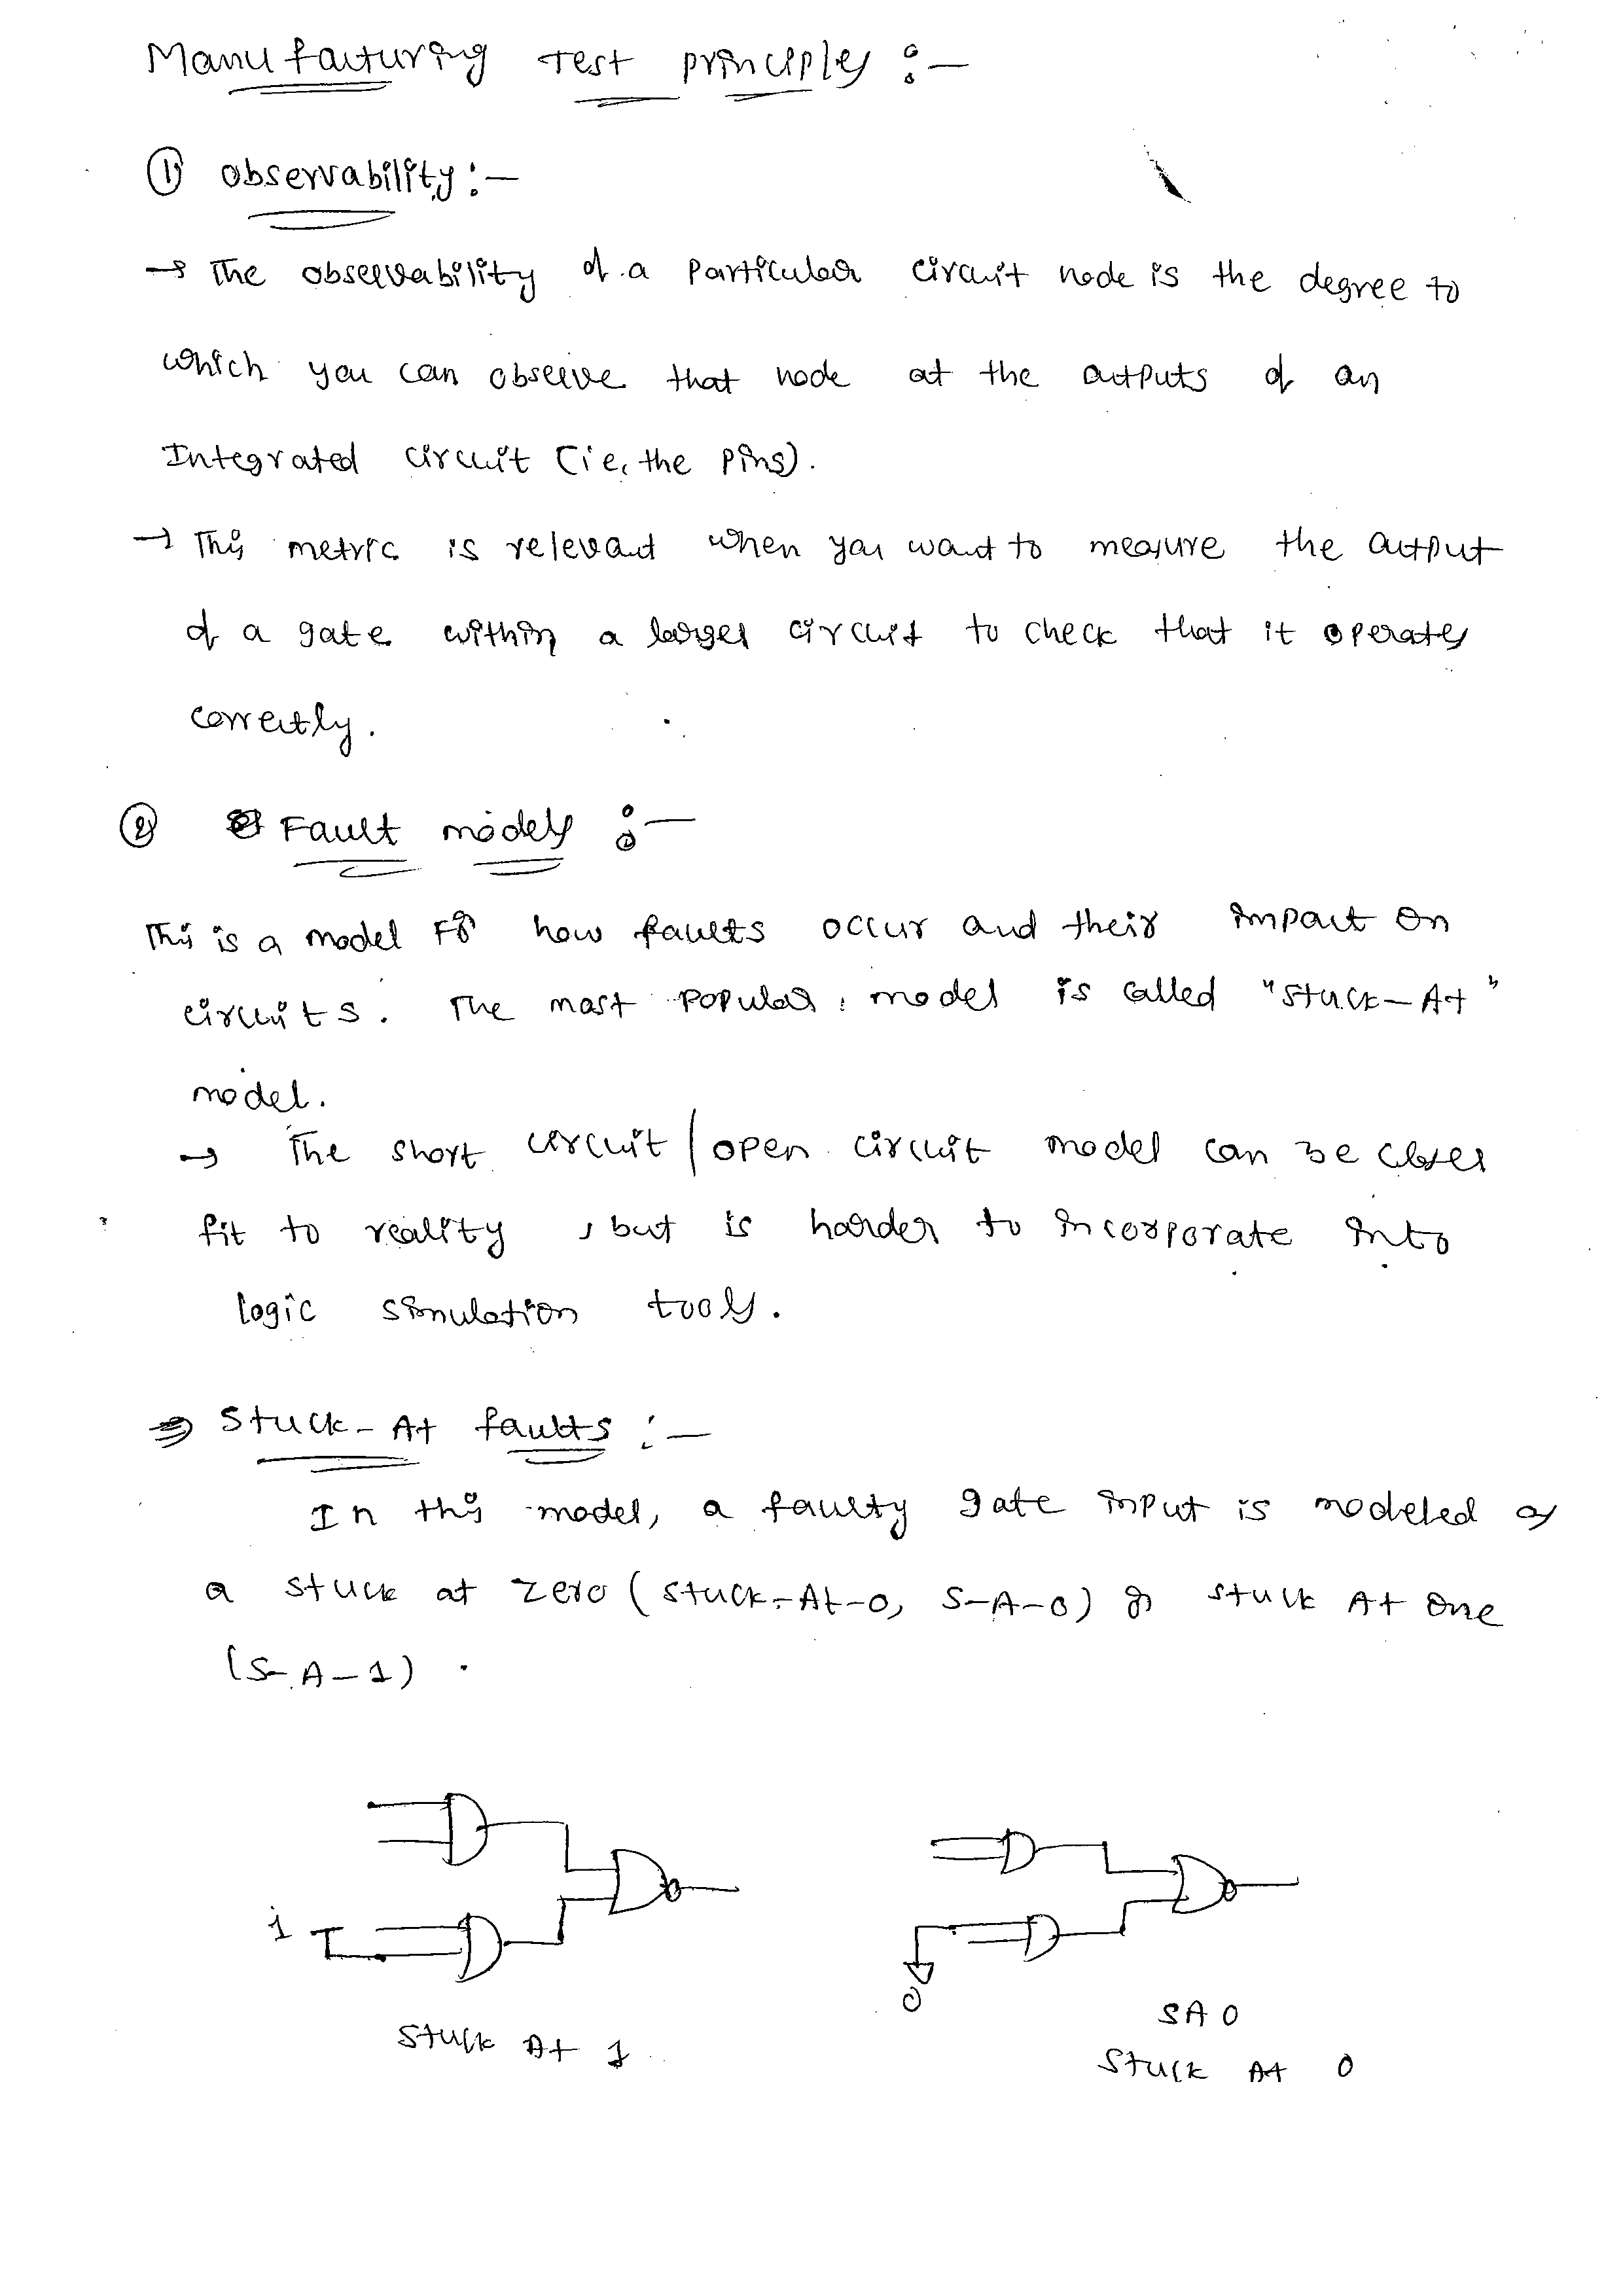 Manufacturing Test principles :-
① observability :-
→ The observability of a particular circuit node is the degree to
which you can observe that node at the outputs of an
Integrated circuit (ie, the pins).
→ This metric is relevant when you want to measure the output
of a gate within a larger circuit to check that it operates
correctly.
② Fault models :-
This is a model For how faults occur and their impact on
circuits. The most popular model is called "Stuck-At"
model.
→ The short circuit / open circuit model can be closer
fit to reality, but is harder to incorporate into
logic simulation tools.
⇒ Stuck-At faults :-
In this model, a faulty gate input is modeled as
a stuck at zero (Stuck-At-0, S-A-0) or stuck At one
(S-A-1).
1
0
Stuck At 1
SA0
Stuck At 0